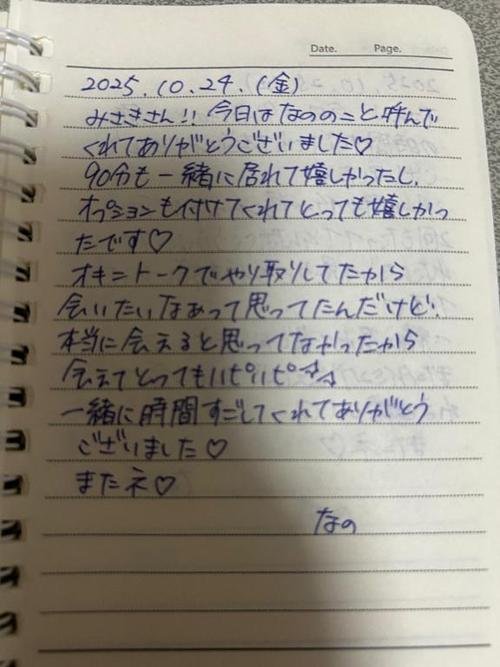 Date. Page.
2025.10.24.(金)
みさきさん!! 今日はなののこと呼んで
くれてありがとうございました♡
90分も一緒に居れて嬉しかったし、
オプションも付けてくれてとっても嬉しかっ
たです♡
オキニトークでやり取りしてたから
会いたいなあって思ってたんだけど、
本当に会えると思ってなかったから
会えてとってもハピハピ☆☆
一緒に時間すごしてくれてありがとう
ございました♡
またネ♡
なの